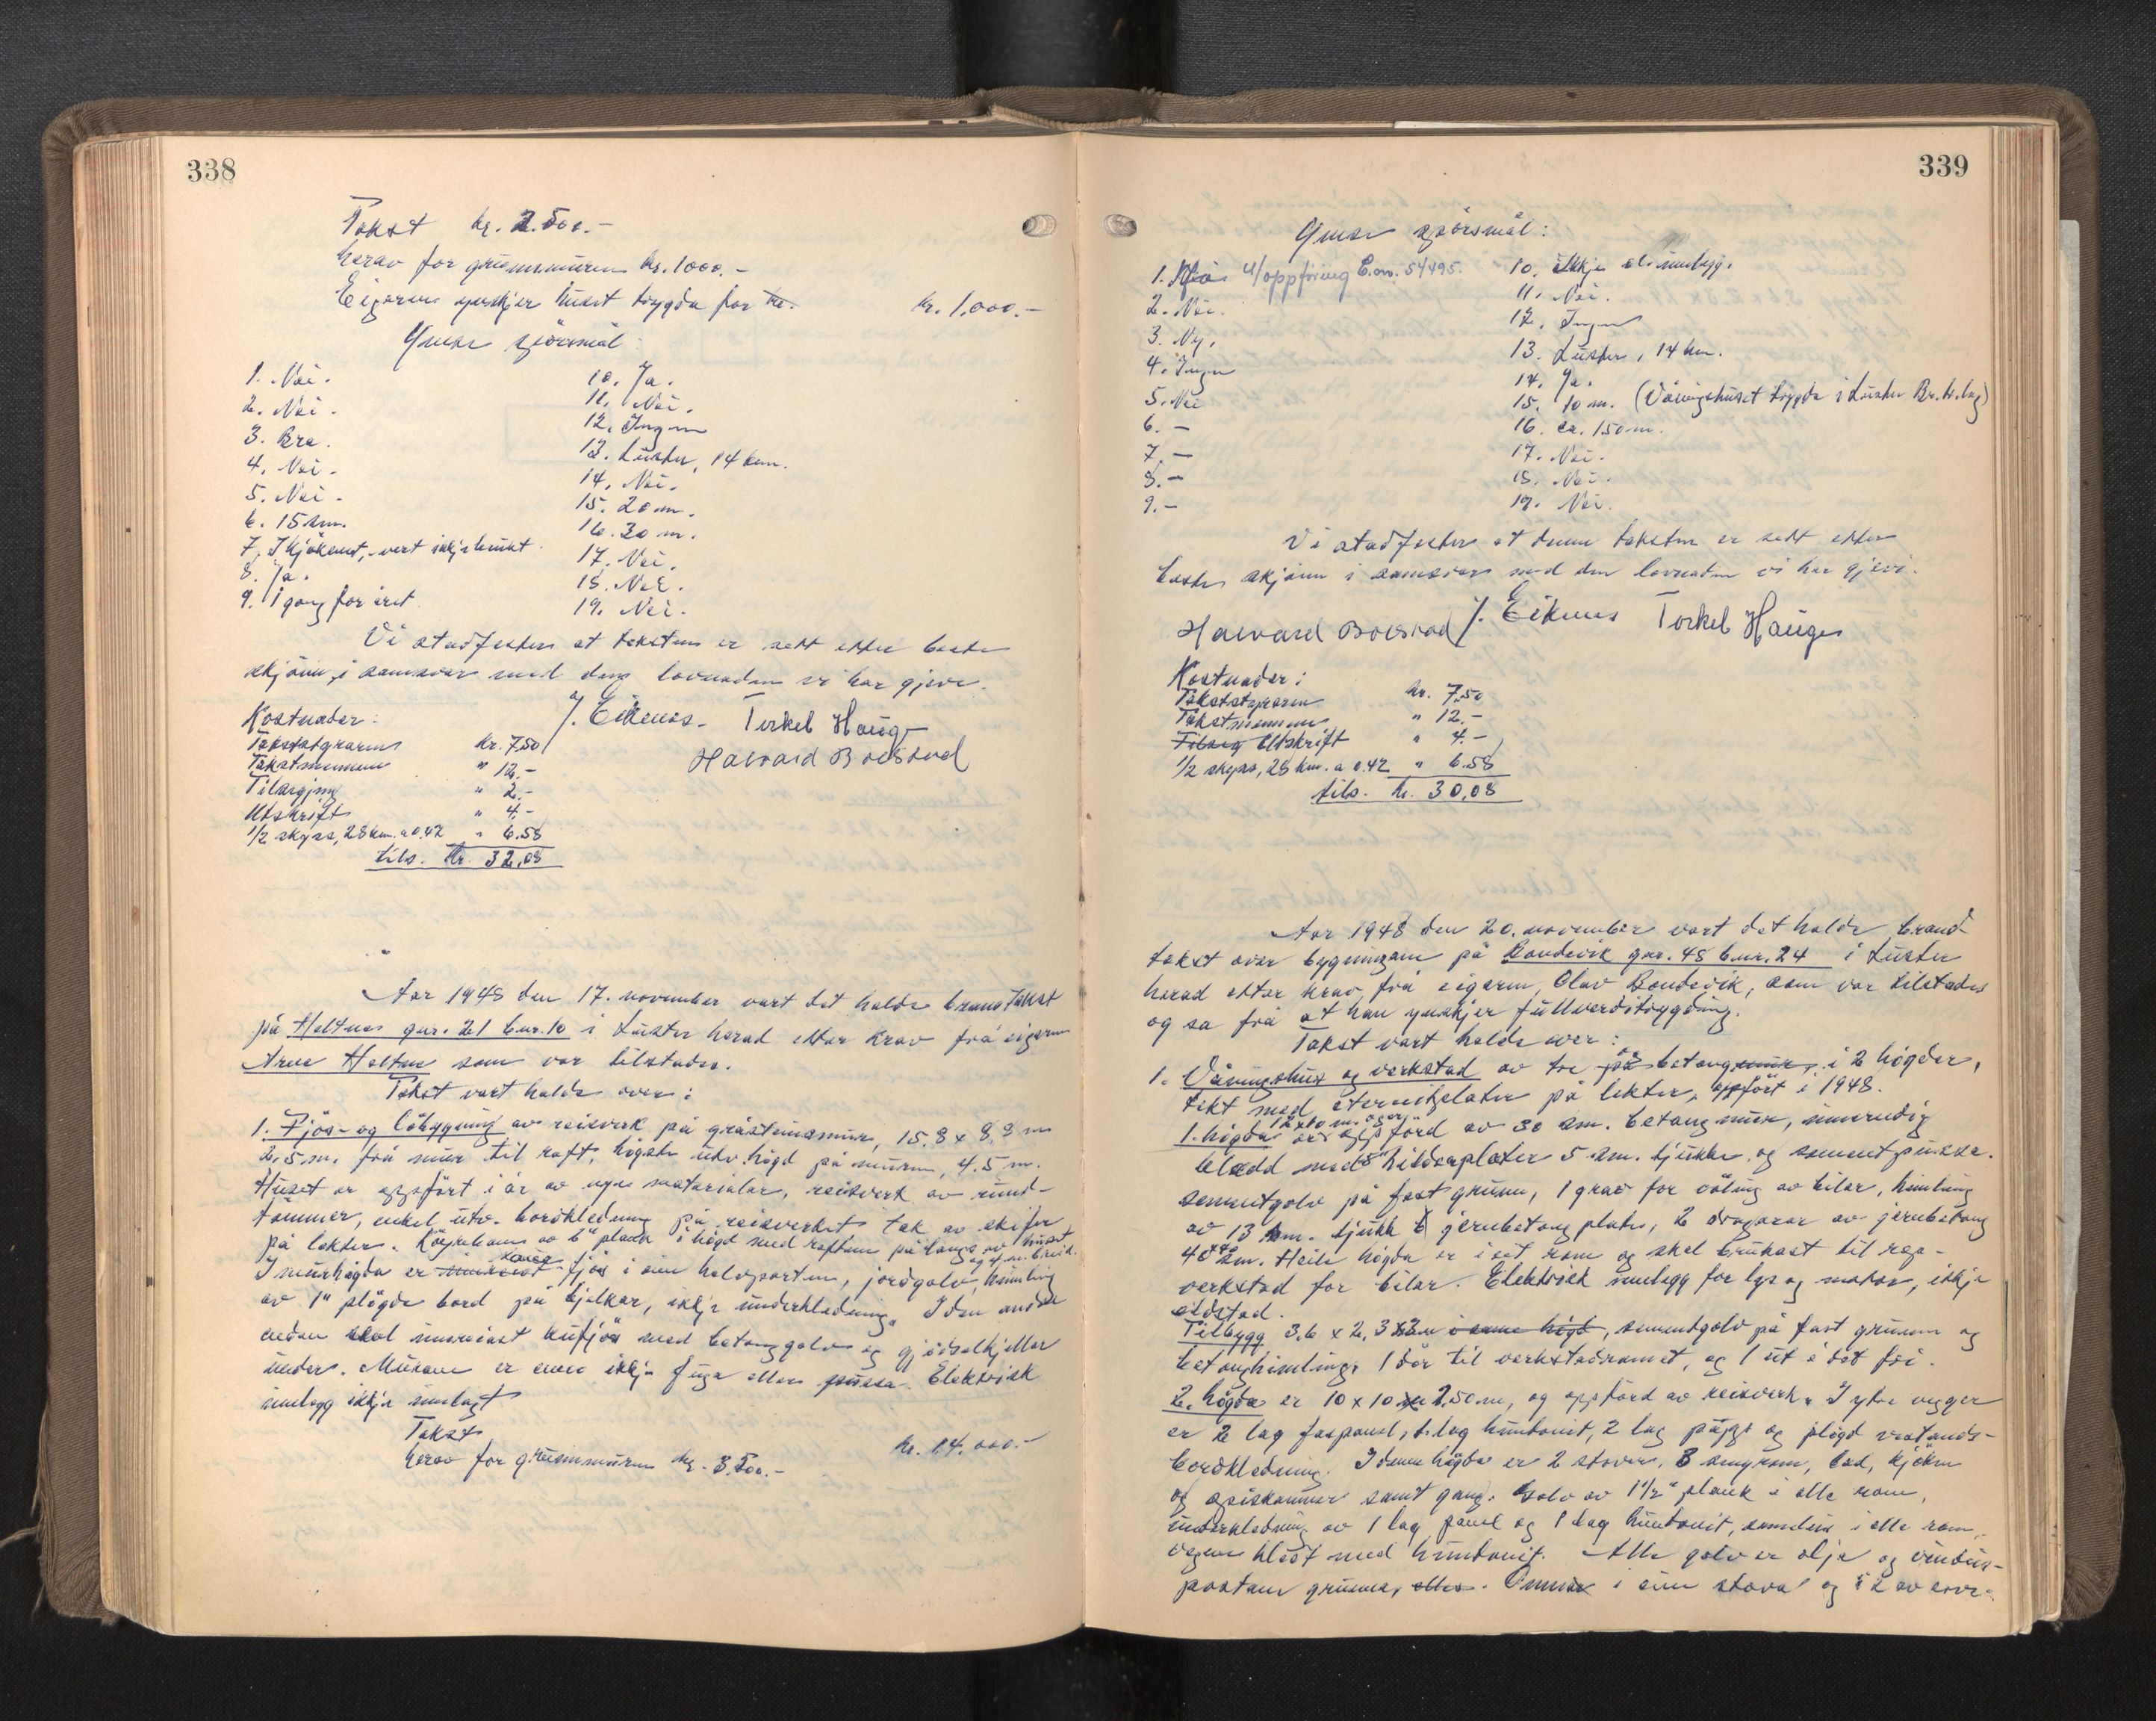 338
Takst kr. 2.500.-
herav for grunnmuren kr. 1000.-
Eigaren ynskjer huset trygda for kr. 1.000.-
Ymse spörsmål:
1. Nei.
2. Nei.
3. Bra.
4. Nei.
5. Nei.
6. 15 sm.
7. I kjökenet, - vert ikkje brukt.
8. Ja.
9. 1 gong for året
10. Ja.
11. Nei.
12. Ingen
13. Luster, 14 km.
14. Nei.
15. 20 m.
16. 30 m.
17. Nei.
18. Nei.
19. Nei.
Vi stadfester at taksten er sett etter beste
skjönn i samsvar med den lovnaden vi har gjeve.
J. Eikenes. Torkel Haug
Halvard Bolstad
Kostnader:
Takststyraren kr. 7,50
Takstmennene " 12,-
Tilsigjing " 2,-
Utskrift " 4,-
1/2 skyss, 28 km. a 0.42 " 6.58
tils. kr. 32,08
Aar 1948 den 17. november vart det halde brandtakst
på Heltnes gnr. 21 bnr. 10 i Luster herad etter krav frå eigaren
Arne Heltne som var tilstades.
Takst vart halde over:
1. Fjös- og löbygning av reisverk på gråsteinsmur, 15.8 x 8,3 m
2,5 m. frå mur til raft, högste utv. högd på muren, 4.5 m.
Huset er oppfört i år av nye materialar, reisverk av rund-
tömmer, enkel utv. bordkledning på reisverket, tak av skifer
på lekter. Köyrebane av 6" plank i högd med raften på langs av huset
I murhögda er saue fjös i eine halvparten, jordgolv, himling
av 1" plögde bord på bjelkar, ikkje underkledning. I den andre
enden skal innreiast kufjös med betonggolv og gjödselkjellar
under. Murane er enno ikkje fuga eller pussa. Elektrisk
innlegg ikkje innlagt
Takst kr. 14.000.-
herav for grunnmuren kr. 3.500.-
339
Ymse spörsmål:
1. U/oppföring E.nr. 54495.
2. Nei.
3. Ny.
4. Ingen
5. Nei
6. -
7. -
8. -
9. -
10. Ikkje el. innlegg.
11. Nei.
12. Ingen
13. Luster, 14 km.
14. Ja.
15. 10 m. (Våningshuset trygda i Luster Br.tr.lag)
16. ca. 150 m.
17. Nei.
18. Nei.
19. Nei.
Vi stadfester at denne taksten er sett etter
beste skjönn i samsvar med den lovnaden vi har gjeve.
Halvard Bolstad J. Eikenes Torkel Haugen
Kostnader:
Takststyraren kr. 7,50
Takstmennene " 12.-
Utskrift " 4.-
1/2 skyss, 28 km. a 0.42 " 6.58
tils. kr. 30,08
Aar 1948 den 20. november vart det halde brand-
takst over bygningane på Bondevik gnr. 48 bnr. 24 i Luster
herad etter krav frå eigaren, Olav Bondevik, som var tilstades
og sa frå at han ynskjer fullverditrygding.
Takst vart halde over:
1. Våningshus og verkstad av tre og betong i 2 högder,
tekt med eternitplater på lekter, oppfört i 1948.
1. högda 12x10 m. og er oppförd av 30 sm. betong mur, innvendig
kledd med hildeplater 5 sm. tjukke og sementpussa.
Sementgolv på fast grunn, 1 grav for öling av bilar, himling
av 13 sm. tjukk jernbetong plate, 2 dragarar av jernbetong
40 sm. Heile högda er i eit rom og skal brukast til rep.-
verkstad for bilar. Elektrisk innlegg for lys og motor, ikkje
eldstad.
Tilbygg 3,6 x 2,3 x 2 m i same högd, sementgolv på fast grunn og
betonghimling. 1 dör til verkstadromet, og 1 ut i det fri.
2. högda er 10 x 10 x 2,50 m, og oppförd av reisverk. I ytre vegger
er 2 lag faspanel, 1 lag huntonit, 2 lag papp og plögd vestlands-
bordkledning. I denne högda er 2 stover, 3 soverom, bad, kjöken
og spiskammer samt gang. Golv av 1 1/2" plank i alle rom,
underkledning av 1 lag panel og 1 lag huntonit, i alle rom,
vegene kledt med huntonit. Alle golv er olja og vindus-
postane grunna. Omnar i eine stova og i 2 av sove-